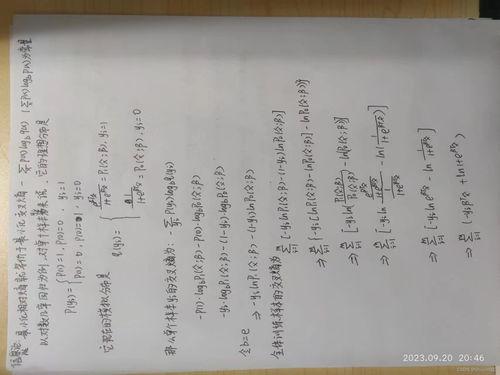 信息论: 最小化相对熵等价于最小化交叉熵 -∑P(x)logb q(x) (∑P(x)logb P(x)为常量
以对数几率回归为例, 对单个样本来说, 它的理想分布是
P(yi) = { P(1)=1, P(0)=0, yi=1
P(1)=0, P(0)=1, yi=0
它现在的模拟分布是
q(yi) = { e^βᵀx̂ / 1+e^βᵀx̂ = P1(x̂;β), yi=1
1 / 1+e^βᵀx̂ = P0(x̂;β), yi=0
那么单个样本的交叉熵为: -∑P(yi)logb q(yi)
-P(1)·logb P1(x̂;β) - P(0)·logb P0(x̂;β)
-yi·logb P1(x̂;β) - (1-yi)·logb P0(x̂;β)
令b=e
⇒ -yi ln P1(x̂;β) - (1-yi) ln P0(x̂;β)
全体训练样本的交叉熵为
∑ [-yi ln P1(x̂;β) - (1-yi) ln P0(x̂;β)]
⇒ ∑ {-yi [ln P1(x̂;β) - ln P0(x̂;β)] - ln P0(x̂;β)}
⇒ ∑ [-yi ln( P1(x̂;β) / P0(x̂;β) ) - ln P0(x̂;β)]
⇒ ∑ [-yi ln( e^βᵀx̂ / 1+e^βᵀx̂ / 1 / 1+e^βᵀx̂ ) - ln( 1 / 1+e^βᵀx̂ )]
⇒ ∑ [-yi ln e^βᵀx̂ - ln 1 / 1+e^βᵀx̂]
⇒ ∑ (-yi βᵀx̂ + ln 1+e^βᵀx̂)
2023.09.20 20:46